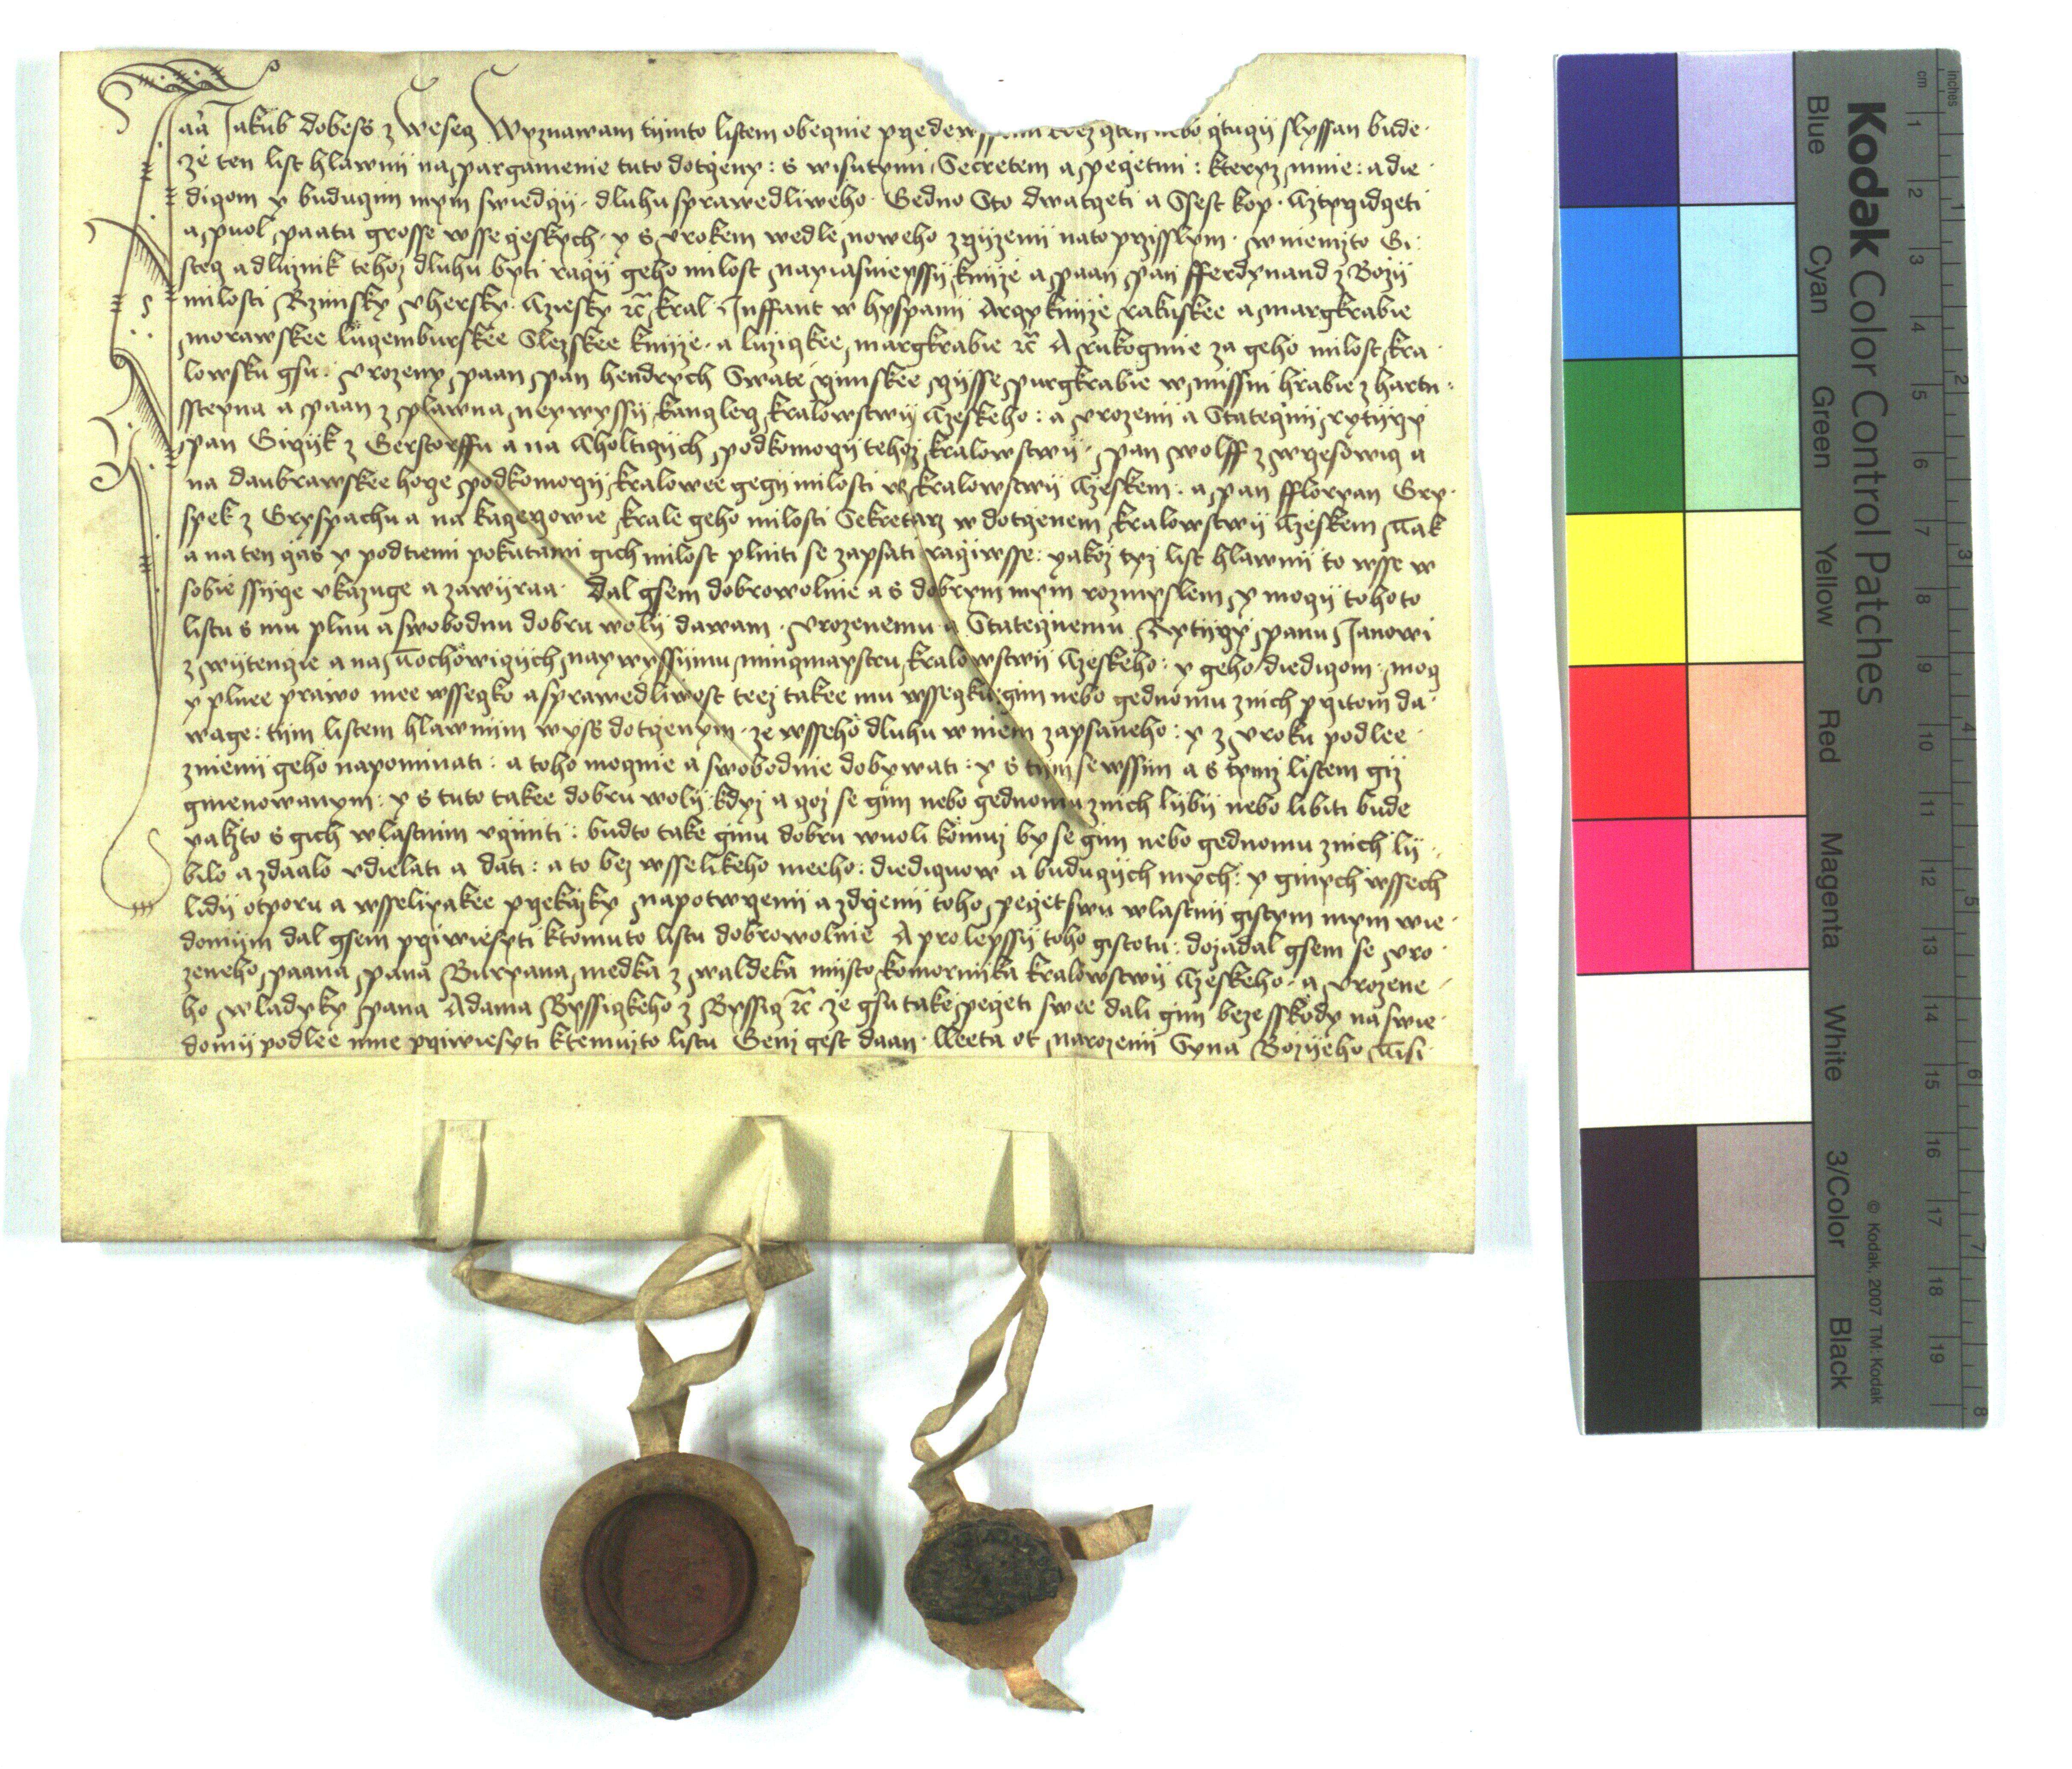 Jaa Jakub dobess z Weseg Wyznawam tijmto listem obecznie przedewssemi nebo cztucij slyssan bude
ze ten list hlawnij na pargamenie tuto dotczeny: s wisutymi Secretem a peczetmi: kteryz mnie: a die
diczom y buduczim mym swiedczij. dluhu sprawedliweho Gedno Sto dwatczeti a Ssest kop. Cztrzidczeti
a puol paata grosse wsse czeskych. y s vrokem wedle noweho zrzijzenij nato przisslym. w niemzto Gi
stecz a dluznik tehoz dluhu byti raczij geho milost nayiasnieyssij knijze a paan pan fferdynand z Bozij
milosti Rzimsky Vhersky. Cziesky ꝛc̃ kral. Inffant w hyspanij Arcyknijze rakuskee a margkrabie
morawskee luczemburskee Slezskee knijze. a luziczkee margkrabie ꝛc̃ A rukogmie za geho milost kra
lowsku gsu: vrozeny paan pan hendrych Swate rzimskee rzijsse purgkrabie w missni hrabie z hartn
ssteyna a paan z plawna neywyssij kanczlerz kralowstwij Czeskeho: a vrozenij a Statecznij rytijrzi
pan Girzijk z Gerstorffu a na Cholticzijch podkomorzij tehoz kralowstwij. pan wolff z wrzesowicz a
na daubrawskee horze podkomorzij kralowee gegij milosti w kralowstwij Czeskem. a pan ffloryan Gry
spek z Gryspachu a na kaczerzowie krale geho milosti Sekretarz w dotczenem kralowstwij Czeskem Tak
a na ten czas y podtiemi pokutami gich milost plniti se zapsati raciwsse: yakoz tyz list hlawnij to wsse w
sobie ssijrze vkazuge a zawijraa. Dal gsem dobrowolnie a s dobrym mym rozmyslem y moczij tohoto
listu s mu plnu a swobodnu dobru wolij dawam. vrozenemu a Statecznemu Rytijrzi panu Janowi
z wijtenczie a na Tochowiczijch naywyssijmu minczmaystru kralowstwij Czeskeho: y geho diediczom: mocz
y plnee prawo mee wsseczko a sprawedliwost teez takee mu wsseczku: gim nebo gednomu znich przitom da
wage: tijm listem hlawnijm wyss dotczenym. ze wsseho dluhu w niem zapsaneho: y z vroku podlee
znienij geho napominati: a toho mocznie a swobodnie dobywati: y s tijm se wssim a s tymz listem giz
gmenowanym: y s tuto takee dobru wolij kdyz a goz se gim nebo gednomu znich lijbij nebo libiti bude
yakzto s gich wlastnim vcziniti: budto take ginu dobru wuoli komuz by se gim nebo gednomu znich lij
bilo a zdaalo vdielati a dati: a to bez wsselikeho meeho: diediczuow a buduczijch mych: y ginych wssech
lidij otporu a wsselixakee przekazky napotwrzenij a zdrzenij toho peczet swu wlastnij gistym mym wie
domijm dal gsem przwiesyti ktomuto listu dobrowolnie A pro lepssij toho gistotu: dozadal gsem se vro
zeneho paana pana Buryana medka z waldeka mijsto komornijka kralowstwij Czeskeho. a vrozene
ho wladyky pana Adama Ryssiczkeho z Ryssicz ꝛc̃ ze gsu take peczeti swee dali gim beze sskody na swie
domij podlee mne przwiesyti ktemuzto listu Genz gest daan. Leeta ot narozenij Syna Bozijeho Tisi
Kodak Color Control Patches
Blue
Cyan
Green
Yellow
Red
Magenta
White
3/Color
Black
© Kodak, 2007 TM: Kodak
cm 1 2 3 4 5 6 7 8 9 10 11 12 13 14 15 16 17 18 19
inches 1 2 3 4 5 6 7 8